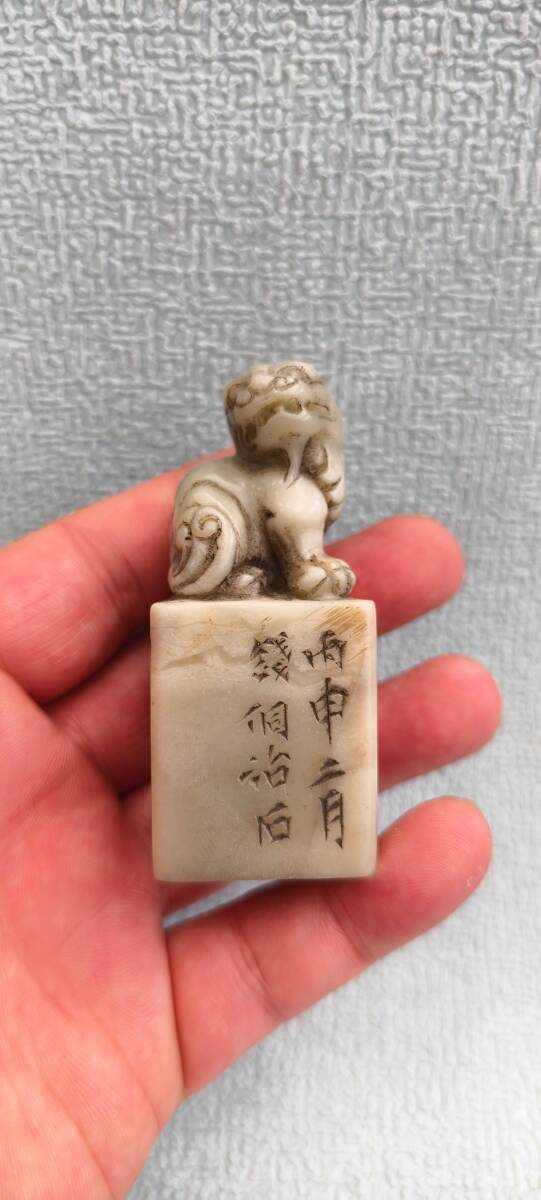 丙申二月
錢侗治石